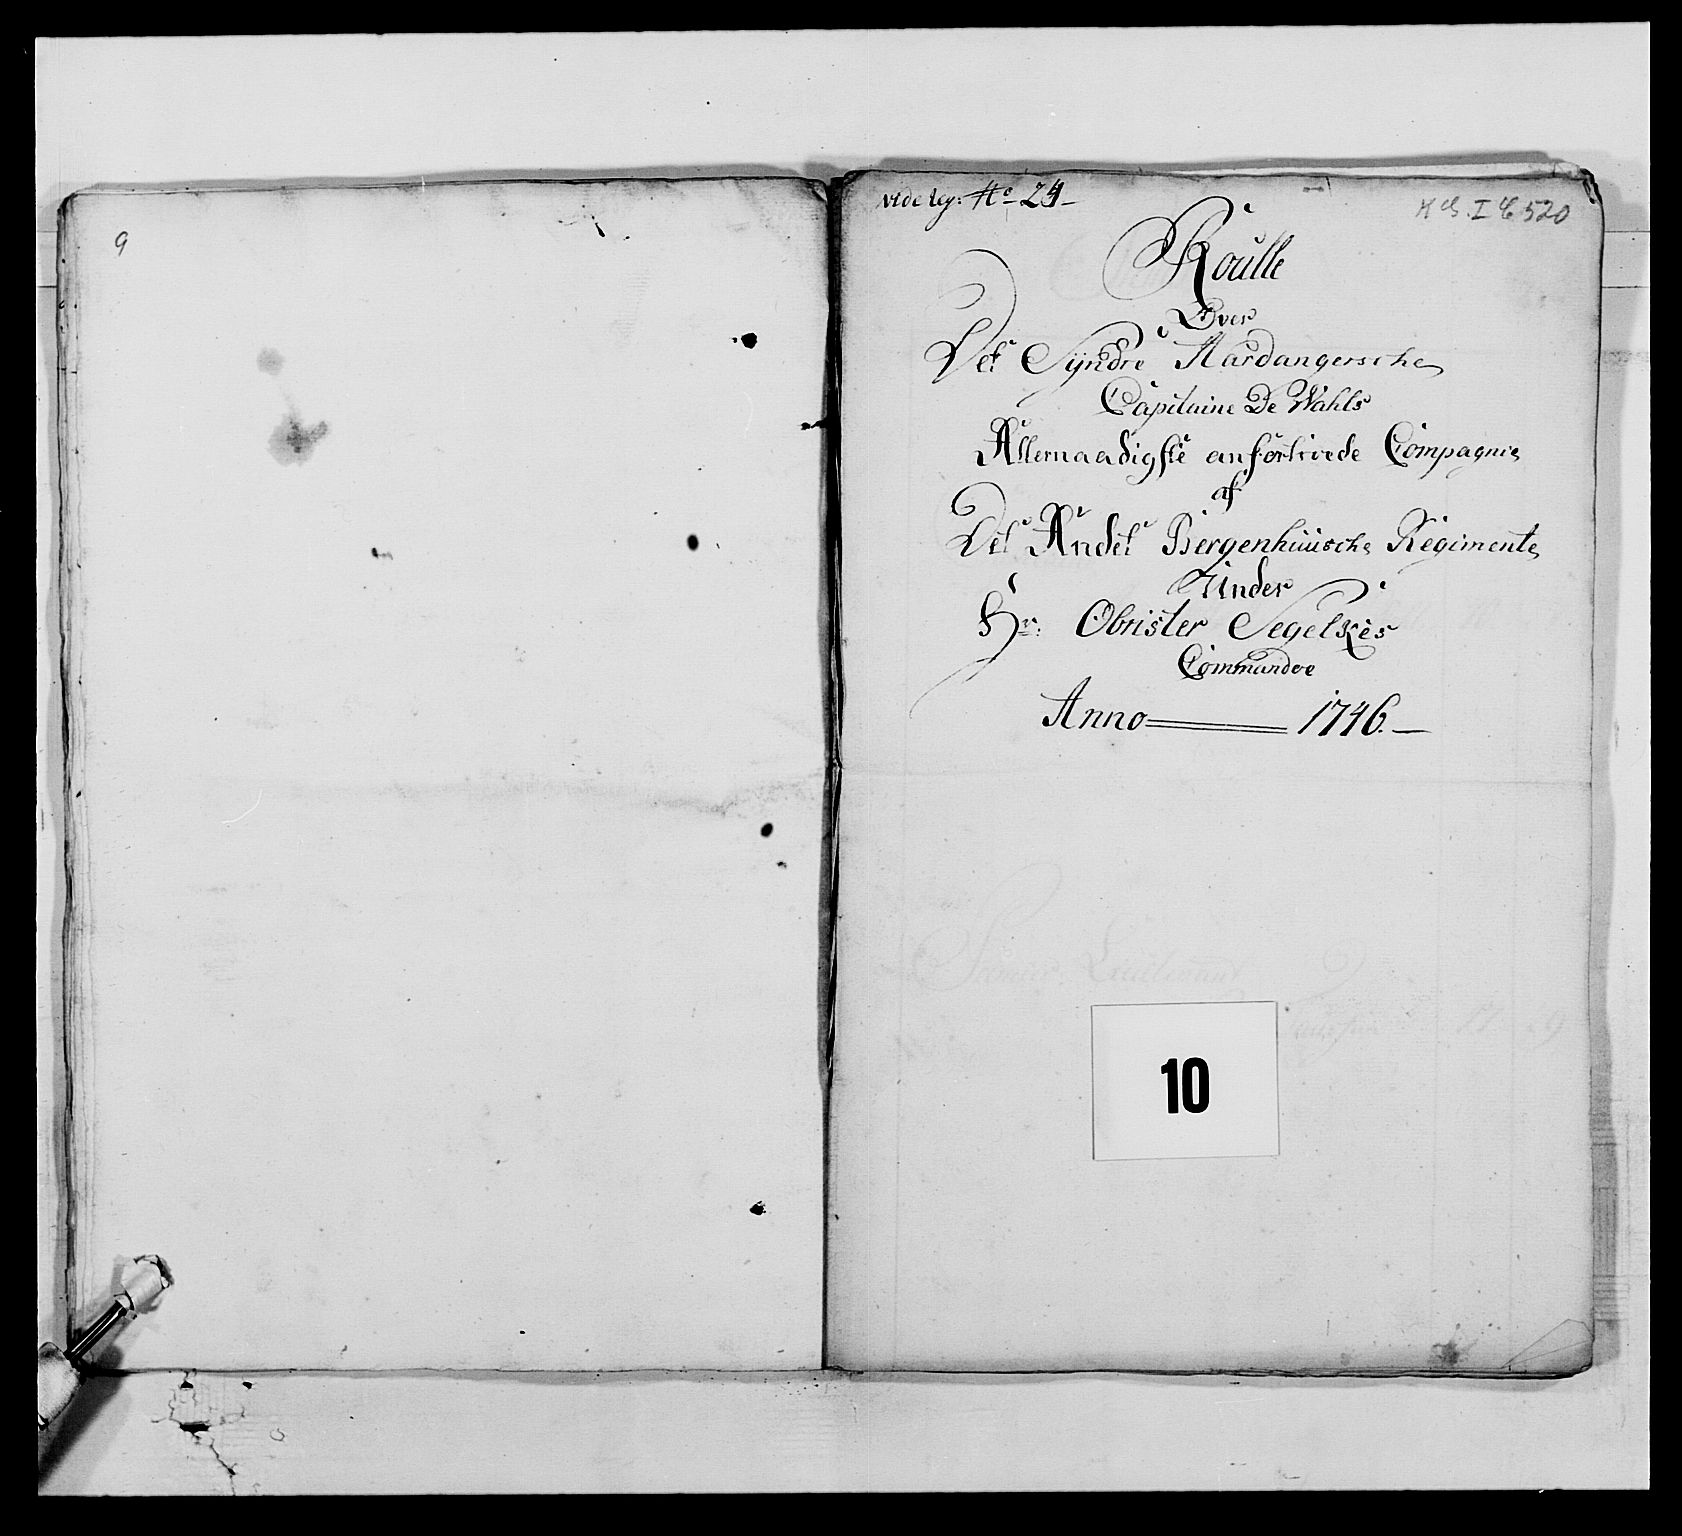 9
vide leg: No 24
I C 520
Roulle
Over
Det Syndre Hardangersche
Capitaine De Wahls
Allernaadigste anfortroede Compagnie
af
Det Andet Bergenhuusche Regimente
Under
Hr: Obrister Segelkes
Commandoe
Anno 1746.
Premier Lieutenant
10